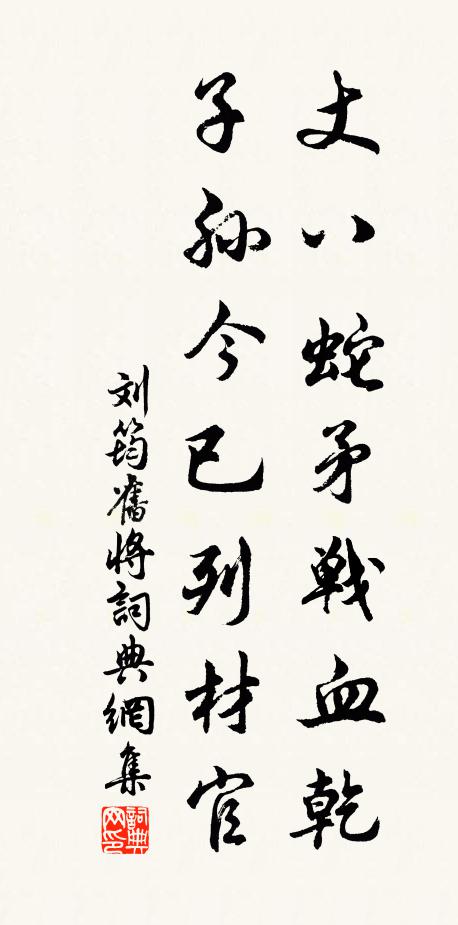 丈八蛇矛戰血乾
子孫今已列材官
刘筠舊將詞典網集
詞典网印